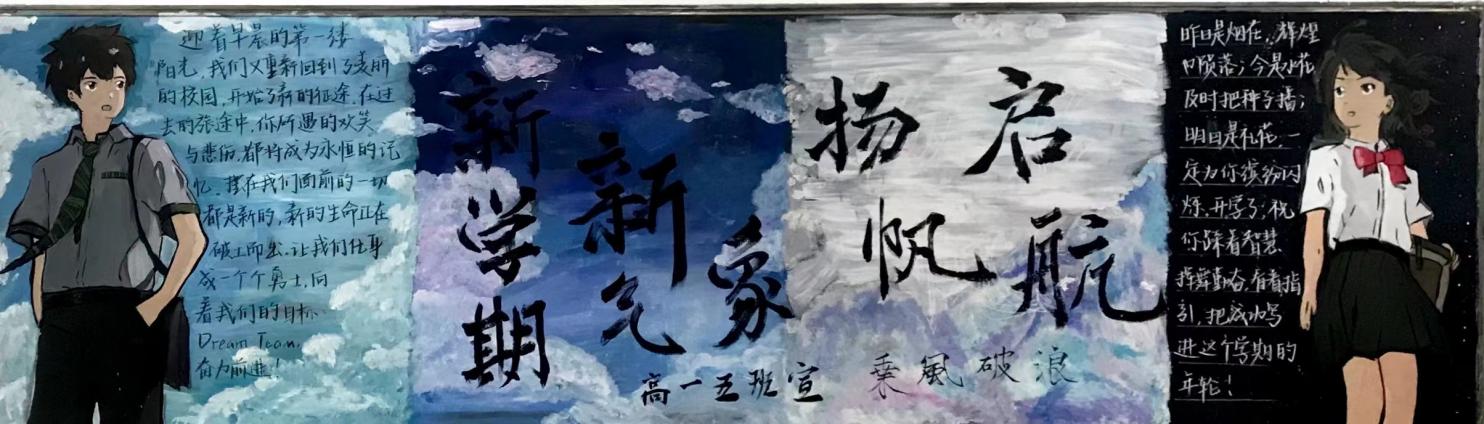 迎着早晨的第一缕
阳光,我们又重新回到了美丽
的校园,开始了新的征途,在过
去的旅途中,你所遇的欢笑
与悲伤,都将成为永恒的记
忆,摆在我们面前的一切
都是新的,新的生命正在
破土而出,让我们化身
成一个个勇士,向
着我们的目标
Dream Team,
奋力前进!
新学期
新气象
扬帆
启航
高一五班宣
乘風破浪
昨日是烟花,辉煌
已陨落;今是火花,
及时把种子播;
明日是礼花,一
定为你缤纷闪
烁,开学了,祝
你踩着智慧
挥舞勤奋,有着指
引,把成功写
进这个学期的
年轮!